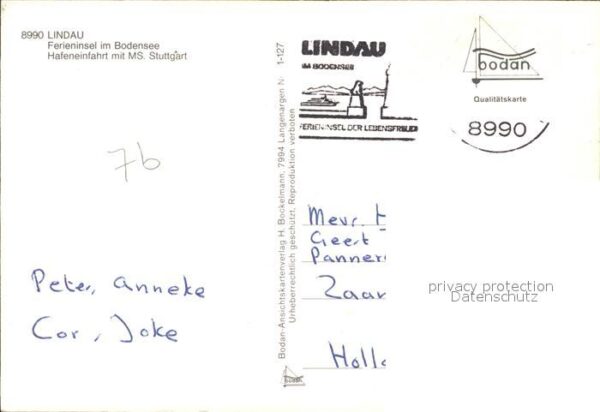 8990 LINDAU
Ferieninsel im Bodensee
Hafeneinfahrt mit MS. Stuttgart
76
Peter, Anneke
Cor, Joke
Bodan-Ansichtskartenverlag H. Bockelmann, 7994 Langenargen N 1-127
Urheberrechtlich geschützt. Reproduktion verboten
bodan
LINDAU
IM BODENSEE
FERIENINSEL DER LEBENSFREUD
bodan
Qualitätskarte
8990
Mevr. H
Geert
Panner
Zaan
Holla
privacy protection
Datenschutz